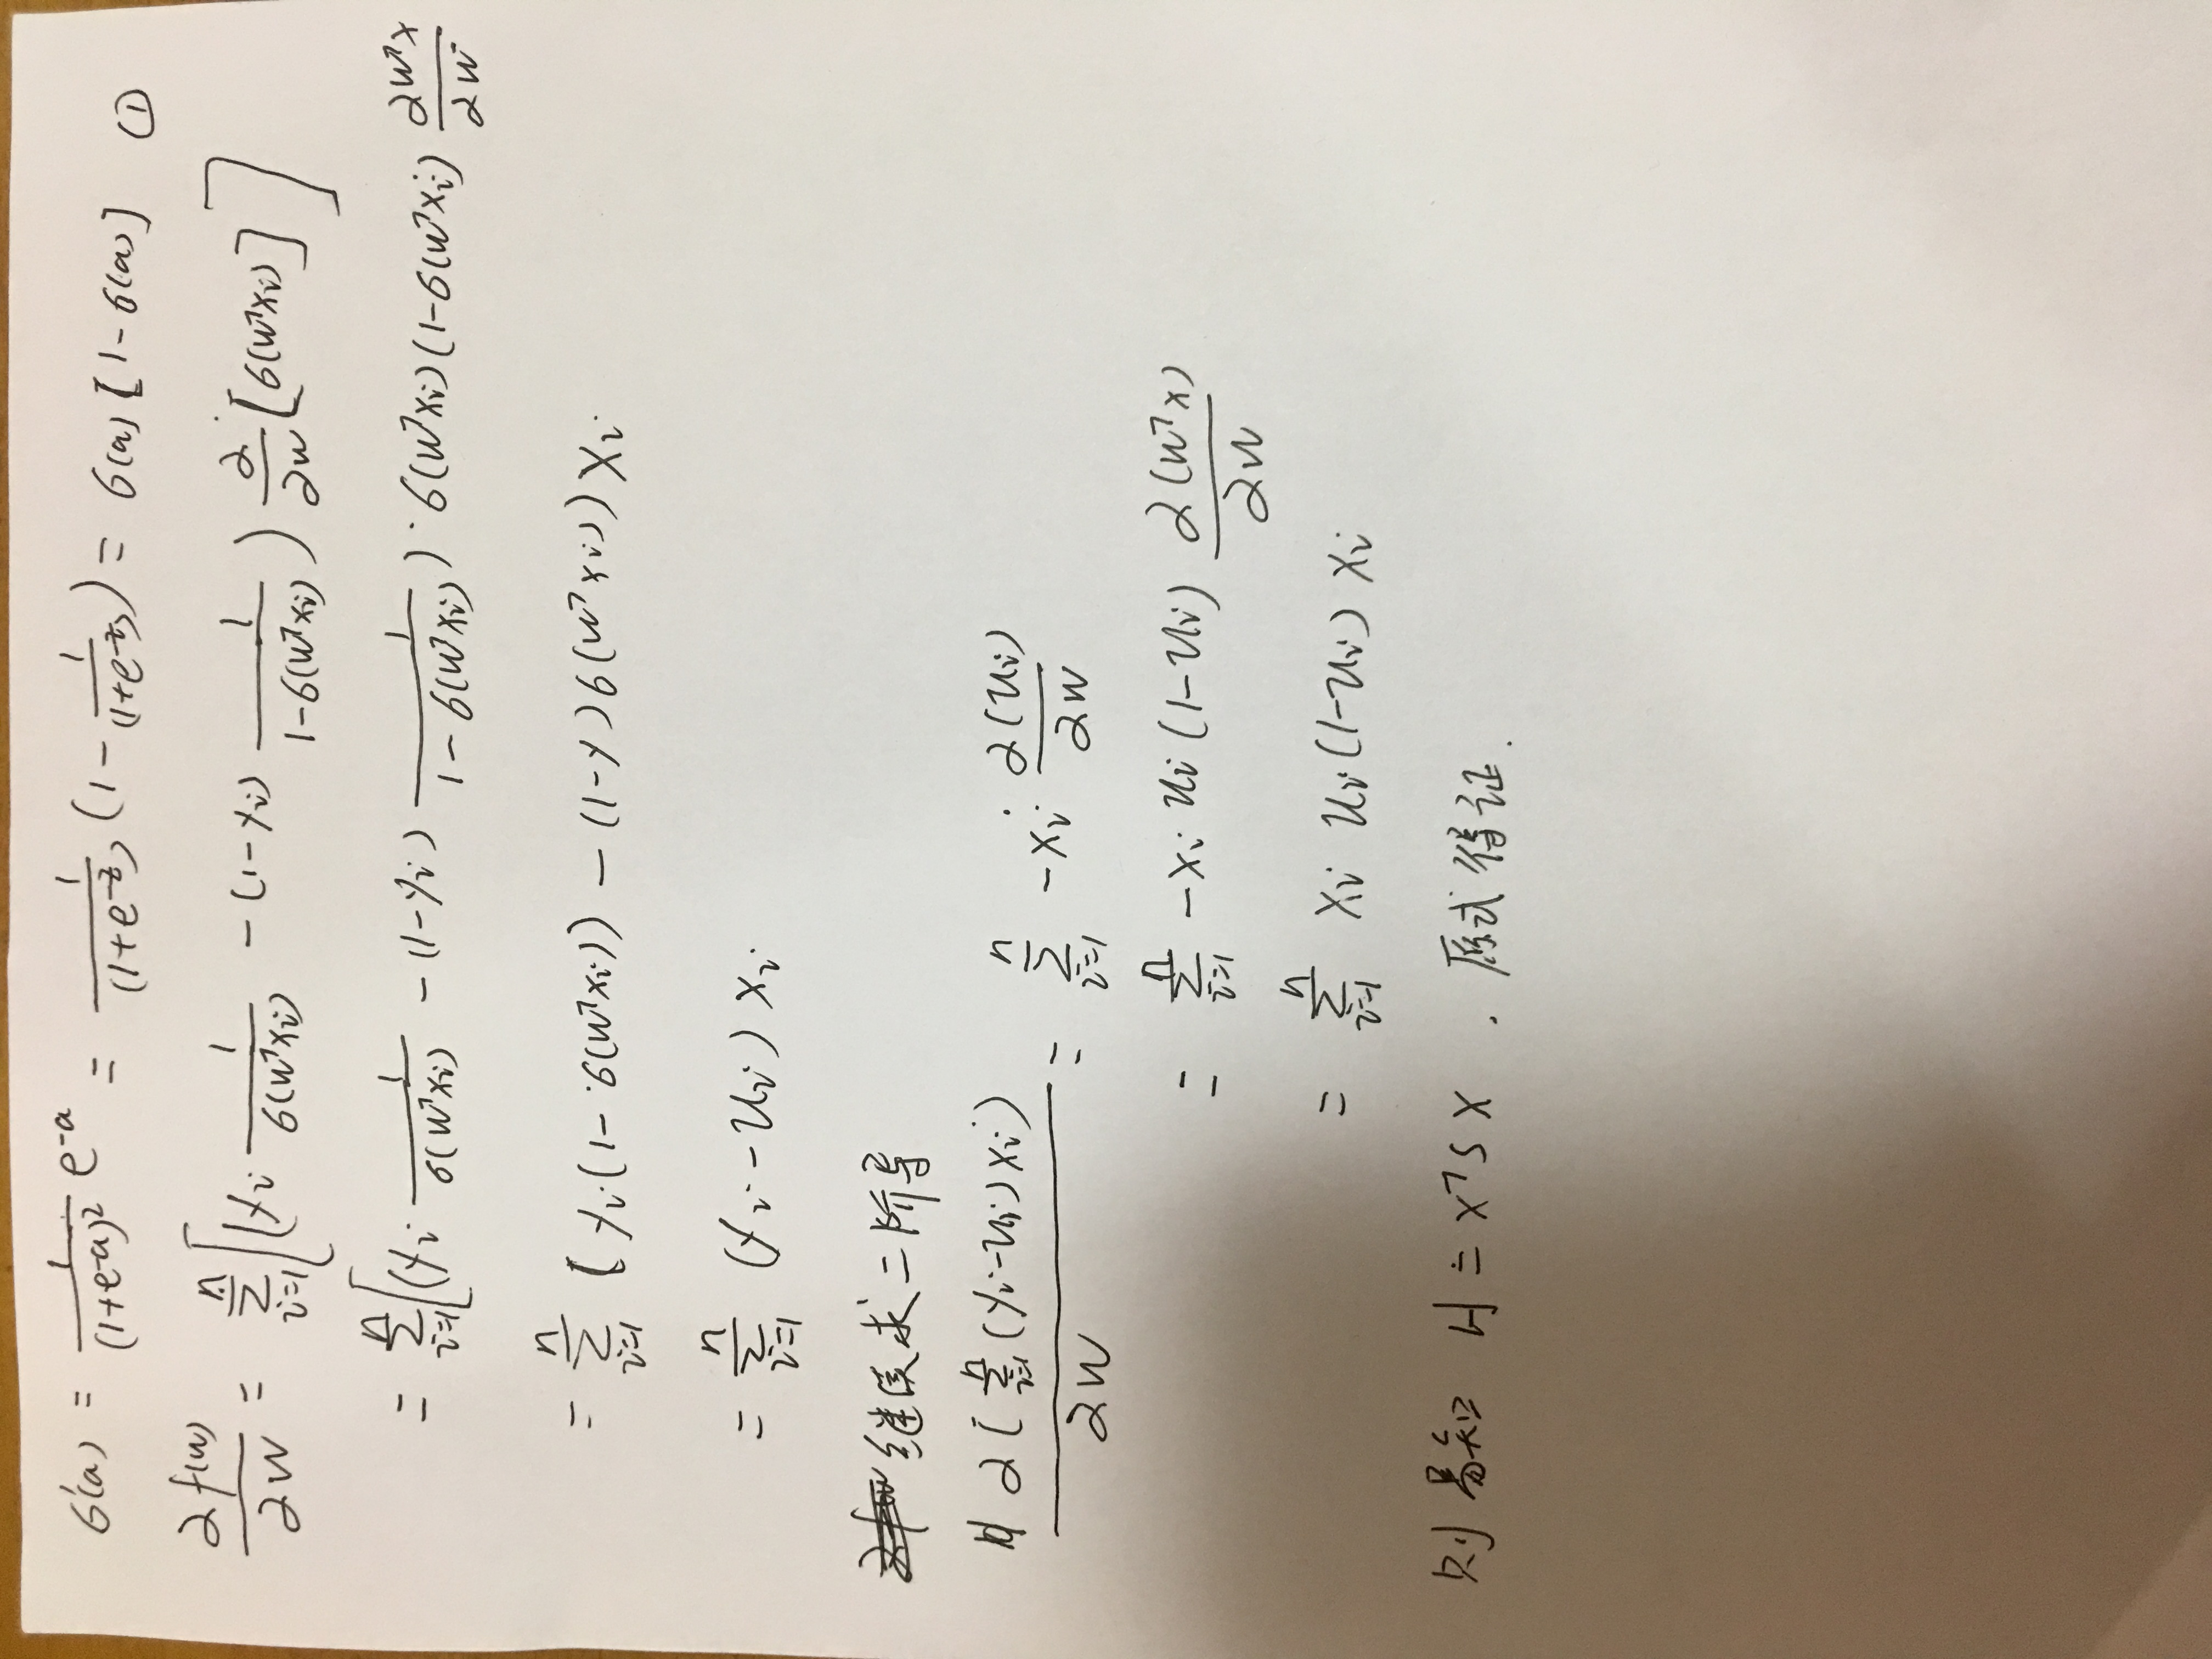 6'(a) = \frac{1}{(1+e^{-a})^2} e^{-a} = \frac{1}{(1+e^{-z})} (1 - \frac{1}{(1+e^{-z})}) = 6(a) [1-6(a)] ①
\frac{∂f(w)}{∂w} = \sum_{i=1}^{n} [(y_i \frac{1}{6(w^Tx_i)} - (1-y_i) \frac{1}{1-6(w^Tx_i)}) \frac{∂}{∂w} [6(w^Tx_i)]]
= \sum_{i=1}^{n} [(y_i \frac{1}{6(w^Tx_i)} - (1-y_i) \frac{1}{1-6(w^Tx_i)}) · 6(w^Tx_i)(1-6(w^Tx_i) \frac{∂w^Tx}{∂w}
= \sum_{i=1}^{n} [y_i(1-6(w^Tx_i)) - (1-y)6(w^Tx_i))x_i
= \sum_{i=1}^{n} (y_i-u_i)x_i
继续求二阶导
H \frac{∂[\sum_{i=1}^{n}(y_i-u_i)x_i)}{∂w} = \sum_{i=1}^{n} -x_i · \frac{∂(u_i)}{∂w}
= \sum_{i=1}^{n} -x_i u_i(1-u_i) \frac{∂(w^Tx)}{∂w}
= \sum_{i=1}^{n} x_i u_i(1-u_i)x_i
则易知 H = x^T S x . 原式得证.